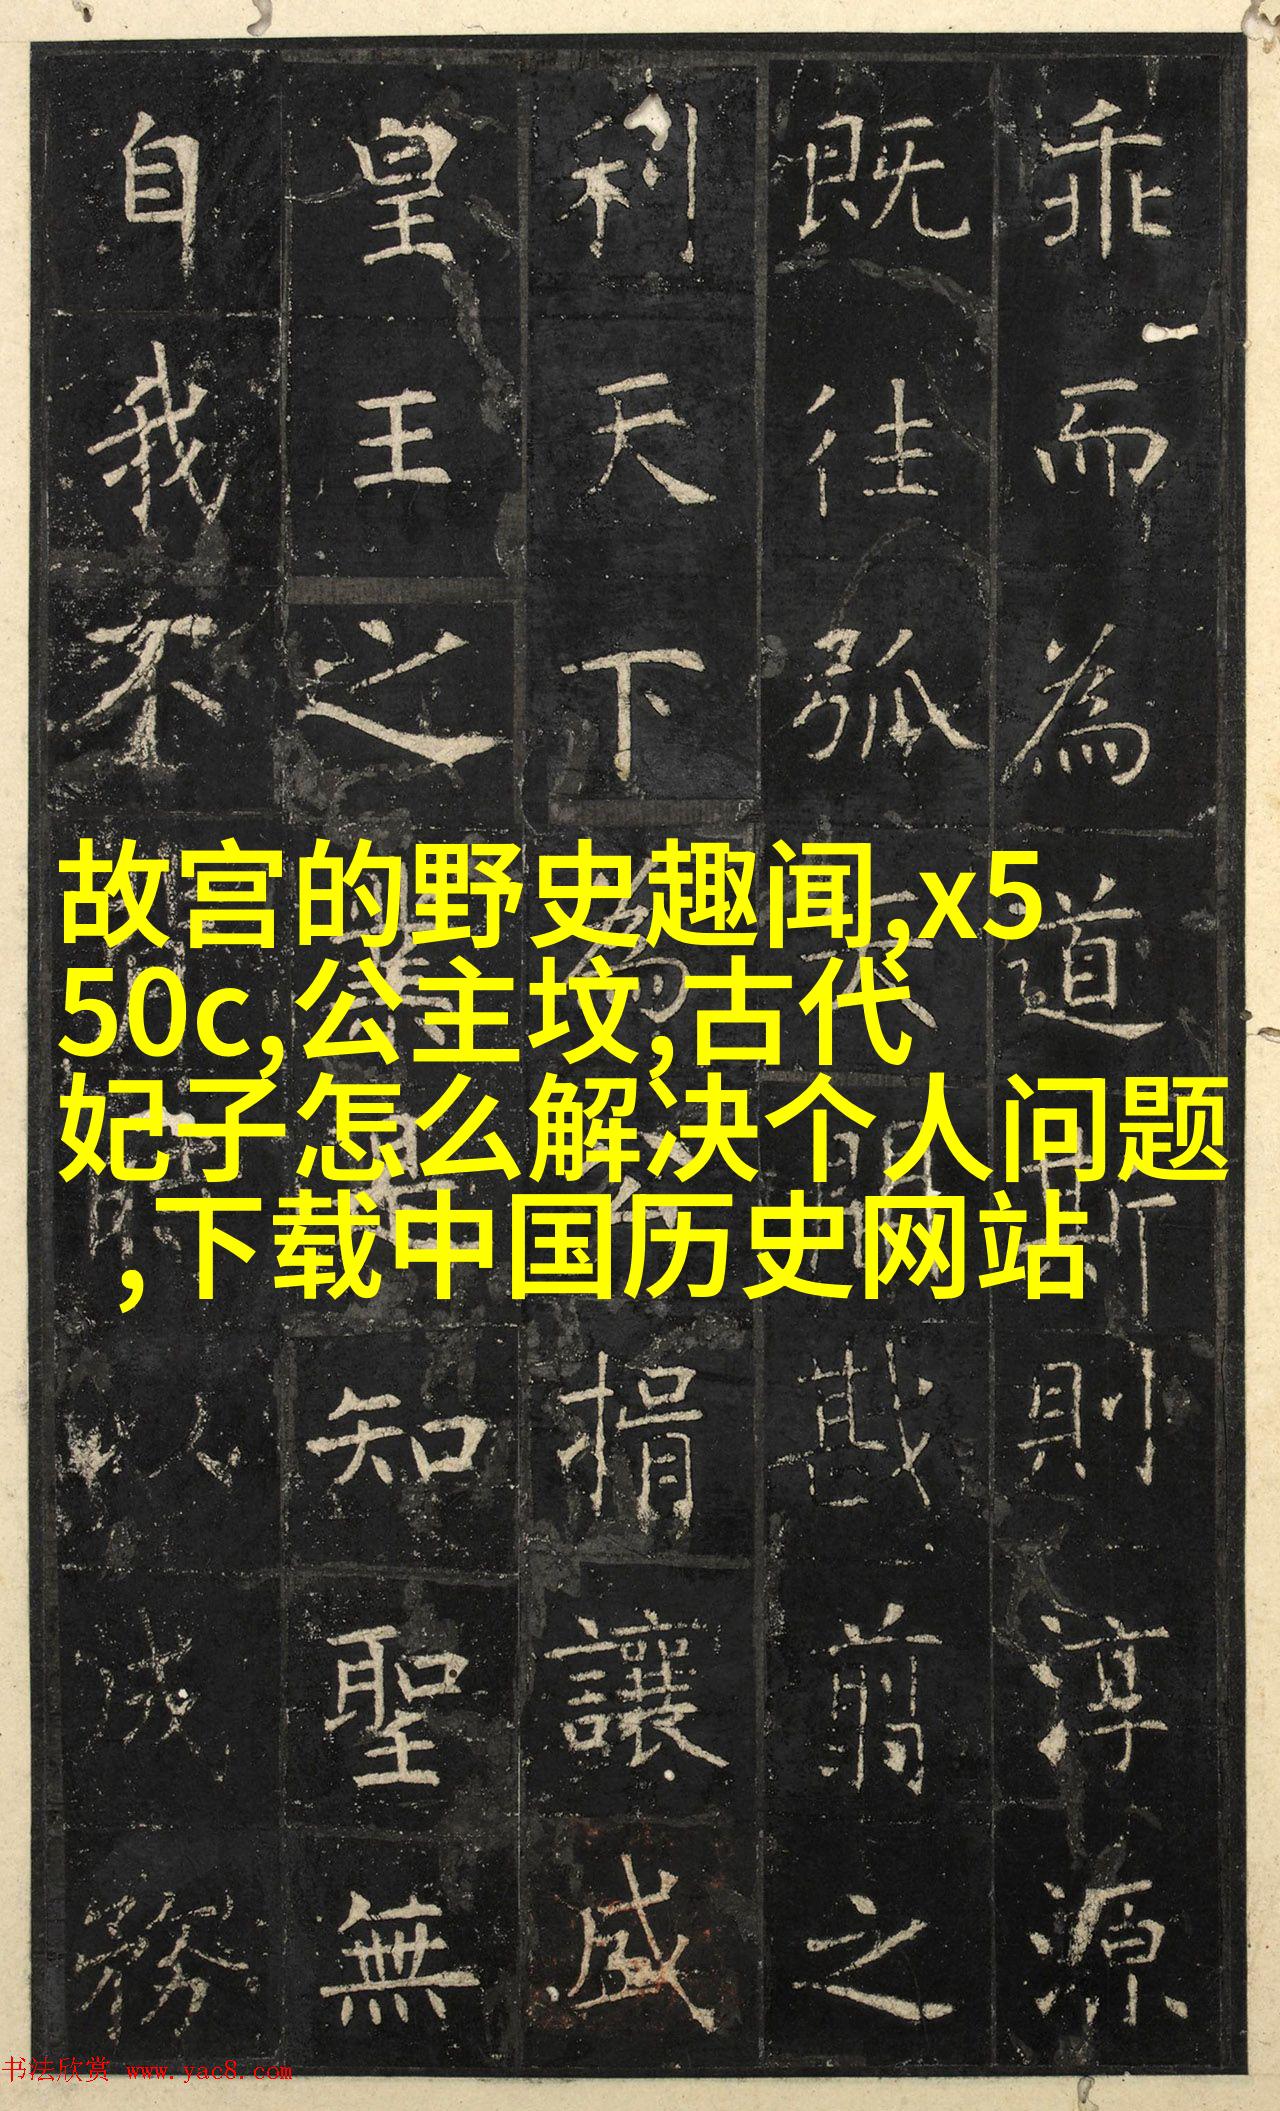 乖而為道斯則淳源
既往弧矢開戡翦之
利天下為公揖讓盛
皇王之業是知聖無
自我不以成務
故宫的野史趣闻,x5
50c,公主坟,古代
妃子怎么解决个人问题
,下载中国历史网站
书法欣赏 www.yac8.com